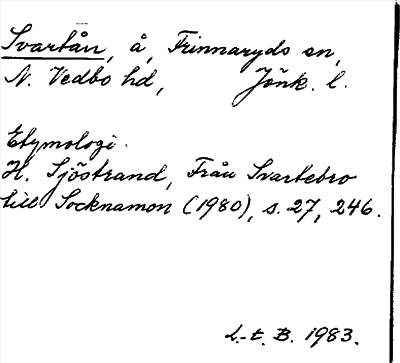 Svartån, å, Frinnaryds sn,
N. Vedbo hd, Jönk. l.
Etymologi.
H. Sjöstrand, Från Svartebro
till Socknamon (1980), s. 27, 246.
L-t. B. 1983.